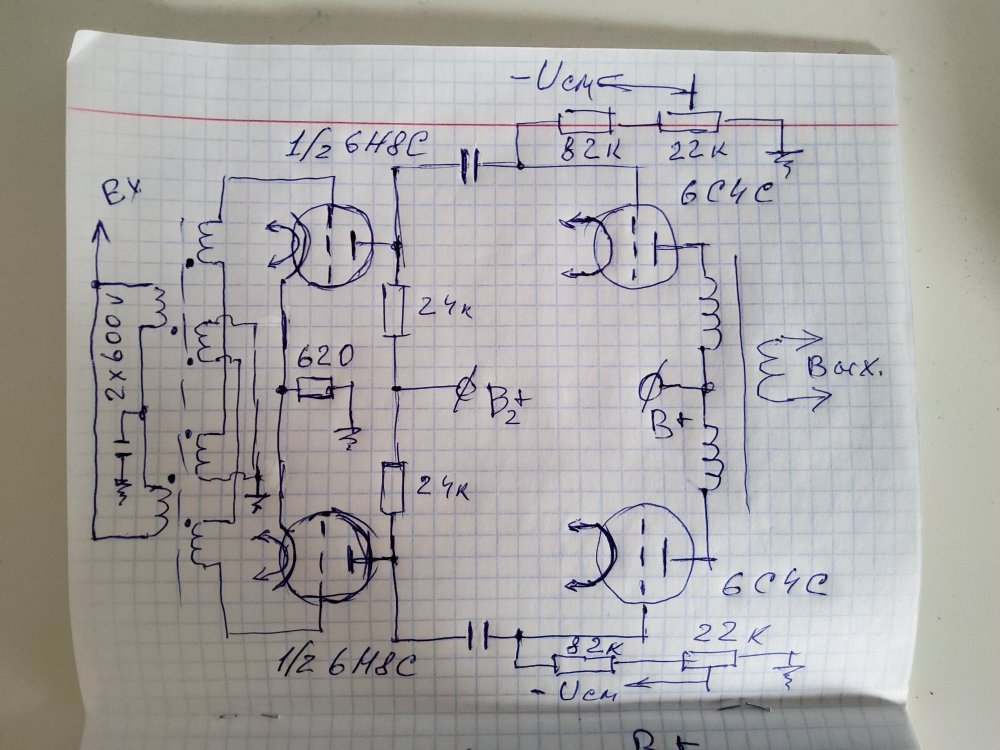 -Uсм
82к 22к
1/2 6Н8С
6С4С
Вх
24к
2x600v
620
B2+
B+
Вых.
24к
6С4С
1/2 6Н8С
82к
22к
-Uсм
B+